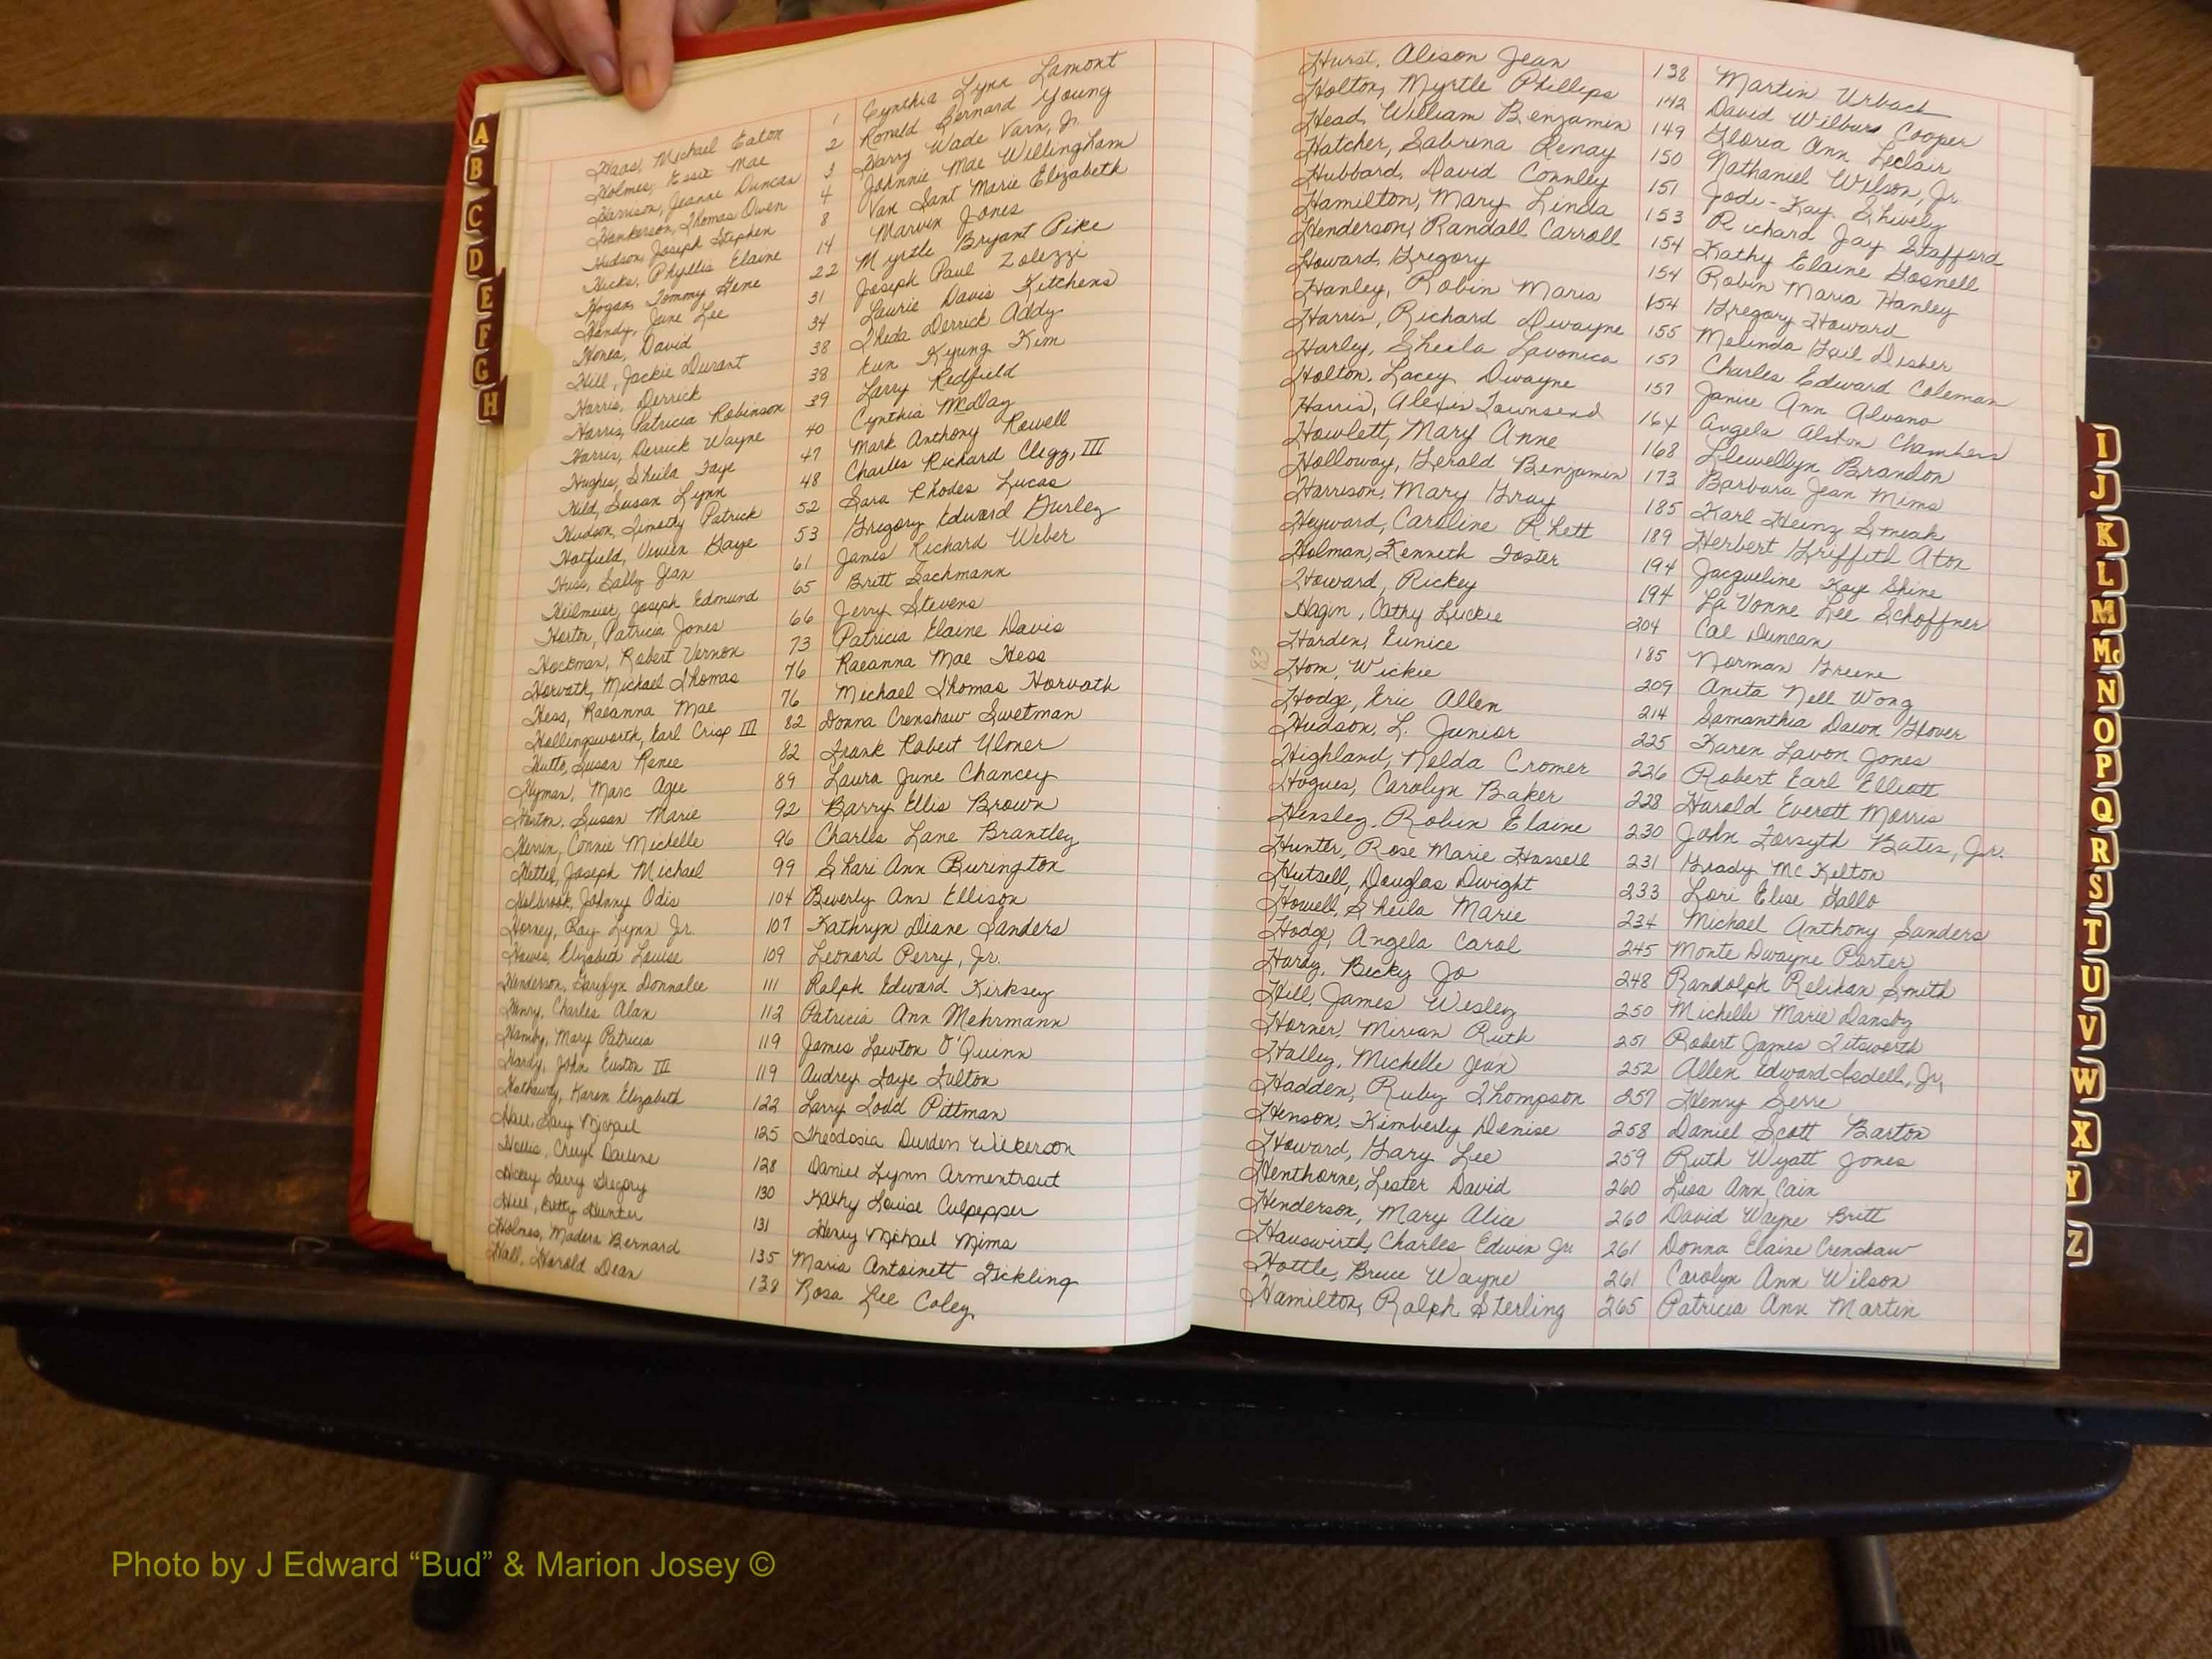 A
B
C
D
E
F
G
H
Haas, Michael Eaton 1 Cynthia Lynn Lamont
Holmes, Essie Mae 2 Ronald Bernard Young
Harrison, Jeanne Duncan 3 Harry Wade Varn, Jr.
Hankerson, Thomas Owen 4 Johnnie Mae Willingham
Hudson, Joseph Stephen 8 Van Sant Marie Elizabeth
Hicks, Phyllis Elaine 14 Marvin Jones
Hogan, Tommy Gene 22 Myrtle Bryant Pike
Handy, June Lee 31 Joseph Paul Zolezzi
Honea, David 34 Laurie Davis Kitchens
Hill, Jackie Durant 38 Theda Derrick Addy
Harris, Derrick 38 Eun Kyung Kim
Harris, Patricia Robinson 39 Larry Redfield
Harris, Derrick Wayne 40 Cynthia McDay
Hughes, Sheila Faye 47 Mark Anthony Rowell
Hild, Susan Lynn 48 Charles Richard Clegg, III
Hudson, Timothy Patrick 52 Sara Rhodes Lucas
Hatfield, Vivien Gaye 53 Gregory Edward Gurley
Huss, Sally Jean 61 James Richard Weber
Heilmeier, Joseph Edmund 65 Britt Sachmann
Horton, Patricia Jones 66 Jerry Stevens
Hockman, Robert Vernon 73 Patricia Elaine Davis
Horvath, Michael Thomas 76 Raeanna Mae Hess
Hess, Raeanna Mae 76 Michael Thomas Horvath
Hollingsworth, Earl Crisp III 82 Donna Crenshaw Swetman
Hutto, Susan Renee 82 Frank Robert Ulmer
Hyman, Marc Agee 89 Laura June Chancey
Horton, Susan Marie 92 Barry Ellis Brown
Herrin, Connie Michelle 96 Charles Lane Brantley
Joseph Michael 99 Shari Ann Burington
Holbrook, Johnny Odis 104 Beverly Ann Ellison
Horney, Ray Lynn Jr. 107 Kathryn Diane Sanders
Elizabeth Louise 109 Leonard Perry, Jr.
Henderson, Donnalee 111 Ralph Edward Kirksey
Henry, Charles Alan 112 Patricia Ann Mehrmann
Hamby, Mary Patricia 119 James Lawton O'Quinn
Hardy, John Euston III 119 Audrey Faye Fulton
Hathaway, Karen Elizabeth 122 Larry Todd Pittman
Hall, Gary Michael 125 Theodosia Durden Wilkerson
Hollis, Cheryl Darlene 128 Daniel Lynn Armentrout
Larry Gregory 130 Kathy Louise Culpepper
Hill, Betty Hunter 131 Henry Michael Mims
Holmes, Madera Bernard 135 Maria Antoinett Tickling
Hall, Harold Dean 138 Rosa Lee Coley
Hurst, Alison Jean 138 Martin Urbach
Holton, Myrtle Phillips 142 David Wilburs Cooper
Head, William Benjamin 149 Gloria Ann Leclair
Hatcher, Sabrina Renay 150 Nathaniel Wilson, Jr.
Hubbard, David Connley 151 Jodi-Kay Shively
Hamilton, Mary Linda 153 Richard Jay Stafford
Henderson, Randall Carroll 154 Kathy Elaine Gosnell
Howard, Gregory 154 Robin Maria Hanley
Hanley, Robin Maria 154 Gregory Howard
Harris, Richard Dwayne 155 Melinda Gail Disher
Harley, Sheila Lavonica 157 Charles Edward Coleman
Holton, Lacey Dwayne 157 Janice Ann Alvano
Harris, Alexis Townsend 164 Angela Alston Chambers
Howlett, Mary Anne 168 Llewellyn Brandon
Holloway, Gerald Benjamin 173 Barbara Jean Mims
Harrison, Mary Gray 185 Karl Heinz Smeak
Heyward, Caroline Rhett 189 Herbert Griffith Aton
Holman, Kenneth Foster 194 Jacqueline Kaye Shine
Howard, Rickey 194 La Vonne Lee Schoffner
Hagin, Cathy Luckie 204 Cal Duncan
Harden, Eunice 185 Norman Greene
183
Hom, Wickie 209 Anita Nell Wong
Hodge, Eric Allen 214 Samantha Dawn Glover
Hudson, L. Junior 225 Karen Lavon Jones
Highland, Nelda Cromer 226 Robert Earl Elliott
Hogues, Carolyn Baker 228 Harold Everett Morris
Hensley, Robin Elaine 230 John Forsyth Bates, Jr.
Hunter, Rose Marie Hassell 231 Grady McKelton
Hutsell, Douglas Dwight 233 Lori Elise Gallo
Howell, Sheila Marie 234 Michael Anthony Sanders
Hodge, Angela Carol 245 Monte Dwayne Porter
Hardy, Becky Jo 248 Randolph Relihan Smith
Hill, James Wesley 250 Michelle Marie Dansby
Horner, Mirian Ruth 251 Robert James Titsworth
Halley, Michelle Jean 252 Allen Edward Isdell, Jr.
Hadden, Ruby Thompson 257 Henry Serre
Henson, Kimberly Denise 258 Daniel Scott Barton
Howard, Gary Lee 259 Ruth Wyatt Jones
Henthorne, Lester David 260 Lisa Ann Cain
Henderson, Mary Alice 260 David Wayne Britt
Hauswirth, Charles Edwin Jr. 261 Donna Elaine Crenshaw
Hottle, Bruce Wayne 261 Carolyn Ann Wilson
Hamilton, Ralph Sterling 265 Patricia Ann Martin
I
J
K
L
M
Mc
N
O
P
Q
R
S
T
U
V
W
X
Y
Z
Photo by J Edward “Bud” & Marion Josey ©